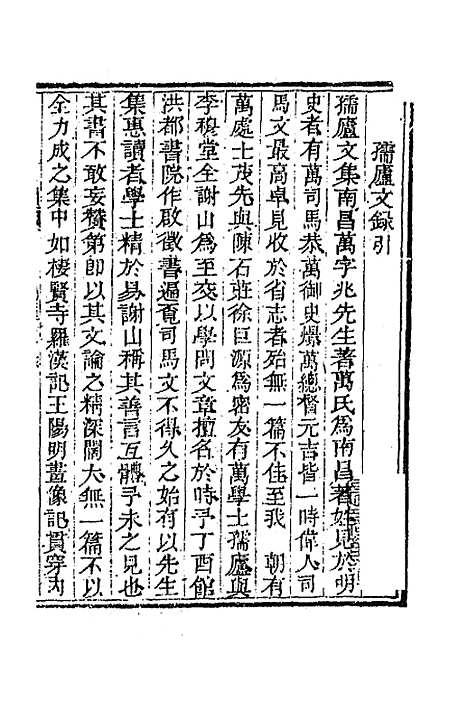 孺廬文錄引
孺廬文集南昌萬字兆先生著萬氏為南昌著姓見於明
史者有萬司馬恭萬御史燝萬總督元吉皆一時偉人司
馬文最高卓見收於省志者殆無一篇不佳至我 朝有
萬處士茂先與陳石莊徐巨源為密友有萬學士孺廬與
李穆堂全謝山為至交以學問文章擅名於時予丁酉館
洪都書院作啟徵書遍覓司馬文不得久之始有以先生
集惠讀者學士精於易謝山稱其善言互體予未之見也
其書不敢妄贊第即以其文論之精深閎大無一篇不以
全力成之集中如棲賢寺羅漢記王陽明畫像記貫穿內